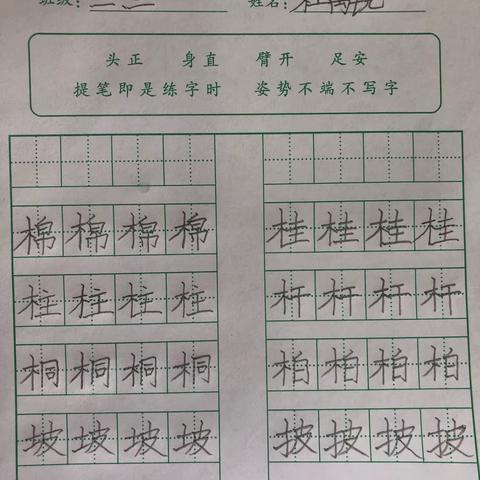 班级: 姓名:
头正 身直 臂开 足安
提笔即是练字时 姿势不端不写字
棉 棉 棉 棉 桂 桂 桂 桂
柱 柱 柱 柱 杆 杆 杆 杆
桐 桐 桐 桐 柏 柏 柏 柏
坡 坡 坡 坡 披 披 披 披